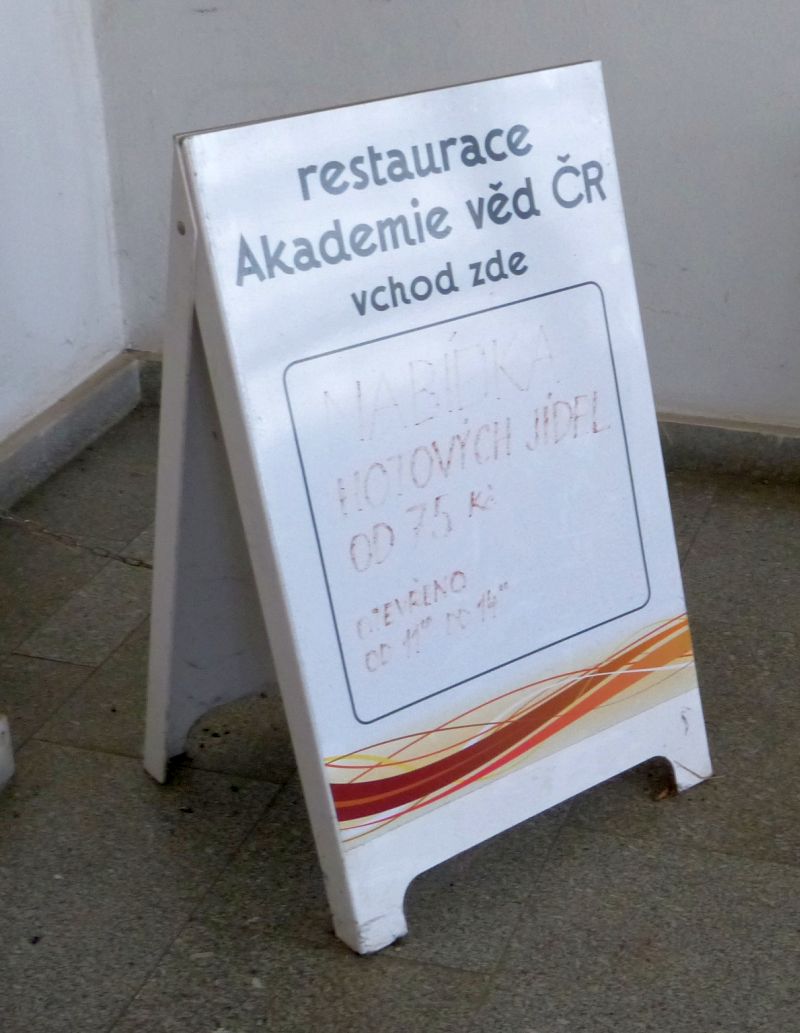 restaurace
Akademie věd ČR
vchod zde
NABÍDKA
HOTOVÝCH JÍDEL
OD 75 Kč
OTEVŘENO
OD 11°° DO 14°°